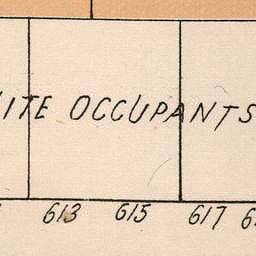 ITE OCCUPANTS
613 615 617